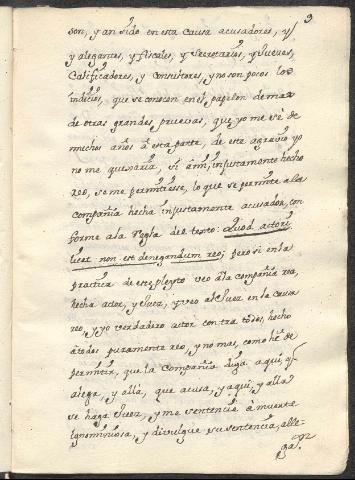 9
son, y an sido en esta causa acusadores, y
y alegantes, y fiscales, y Secretarios, y Jueces,
Calificadores, y Consultores, y no son pocos los
indicios, que se conocen en el papelon demas
de otras grandes pruevas, que yo me sè de
muchos años à esta parte, de este agravio yo
no me quexaria, si à mi, injustamente hecho
reo, se me permitiesse, lo que se permite a la
Compañia hecha injustamente acusadora, con
forme a la Regla del texto: Quod actori
licet non est denegandum reo; pero si en la
practica de este pleyto veo à la Compañia rea,
hecha actor, y Juez, y veo al Juez en la causa
reo, y yo verdadero actor contra todos, hecho
à todos puramente reo, y no mas, como he de
permitir, que la Compañia diga aqui, q
alega, y allà, que acusa, y aqui, y alla
se haga Juez, y me sentencie à muerte
ignominiosa, y divulgue su sentencia, alle-
ga